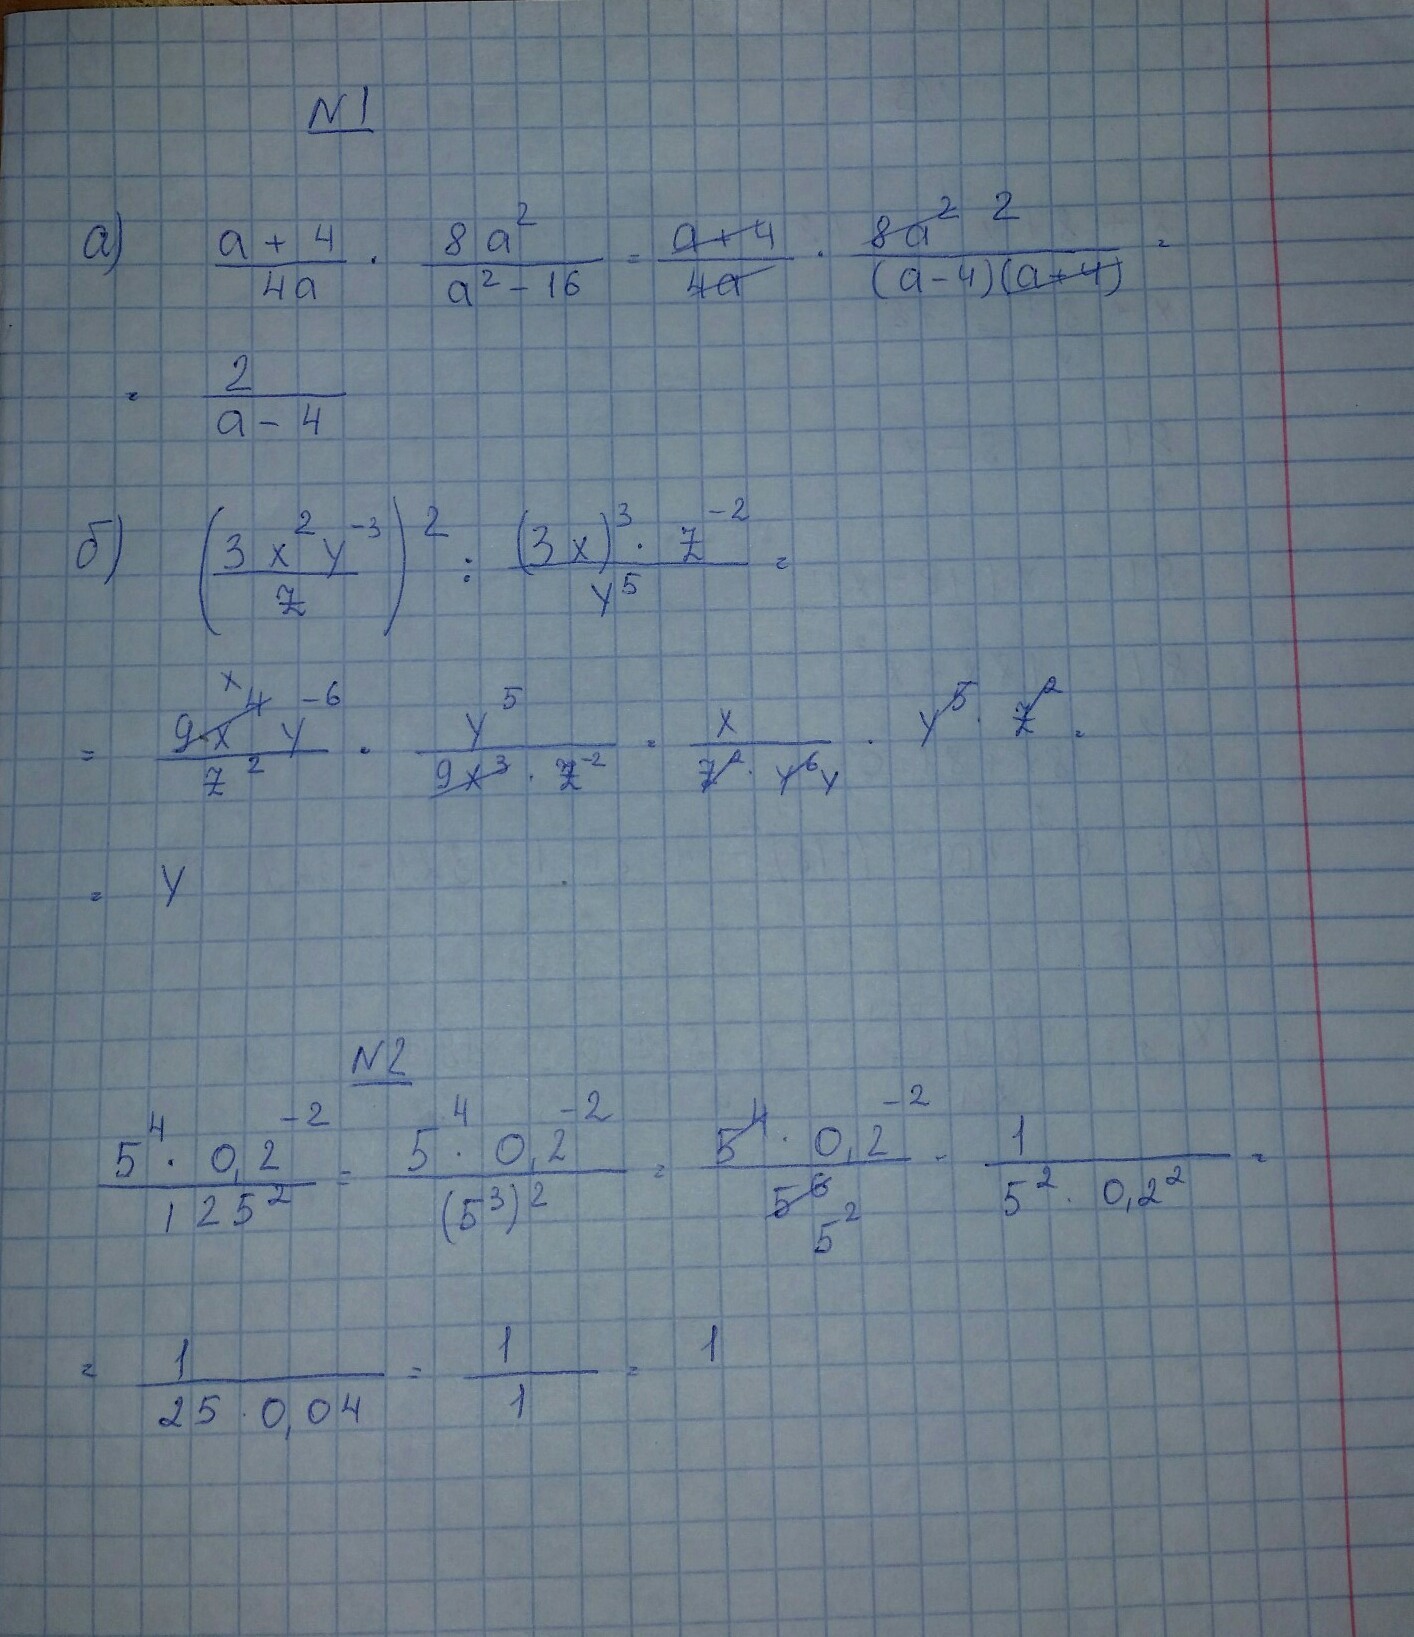 N1
а) (a + 4)/(4a) · (8a²)/(a² - 16) = (a + 4)/(4a) · (8a² 2)/((a - 4)(a + 4)) =
= 2/(a - 4)
б) ((3x²y⁻³)/z)² : ((3x)³ · z⁻²)/y⁵ =
= (9x⁴ x y⁻⁶)/z² · y⁵/(9x³ · z⁻²) = x/(z² · y⁶ y) · y⁵ · z² =
= y
N2
(5⁴ · 0,2⁻²)/125² = (5⁴ · 0,2⁻²)/(5³)² = (5⁴ · 0,2⁻²)/(5⁶ 5²) = 1/(5² · 0,2²) =
= 1/(25 · 0,04) = 1/1 = 1